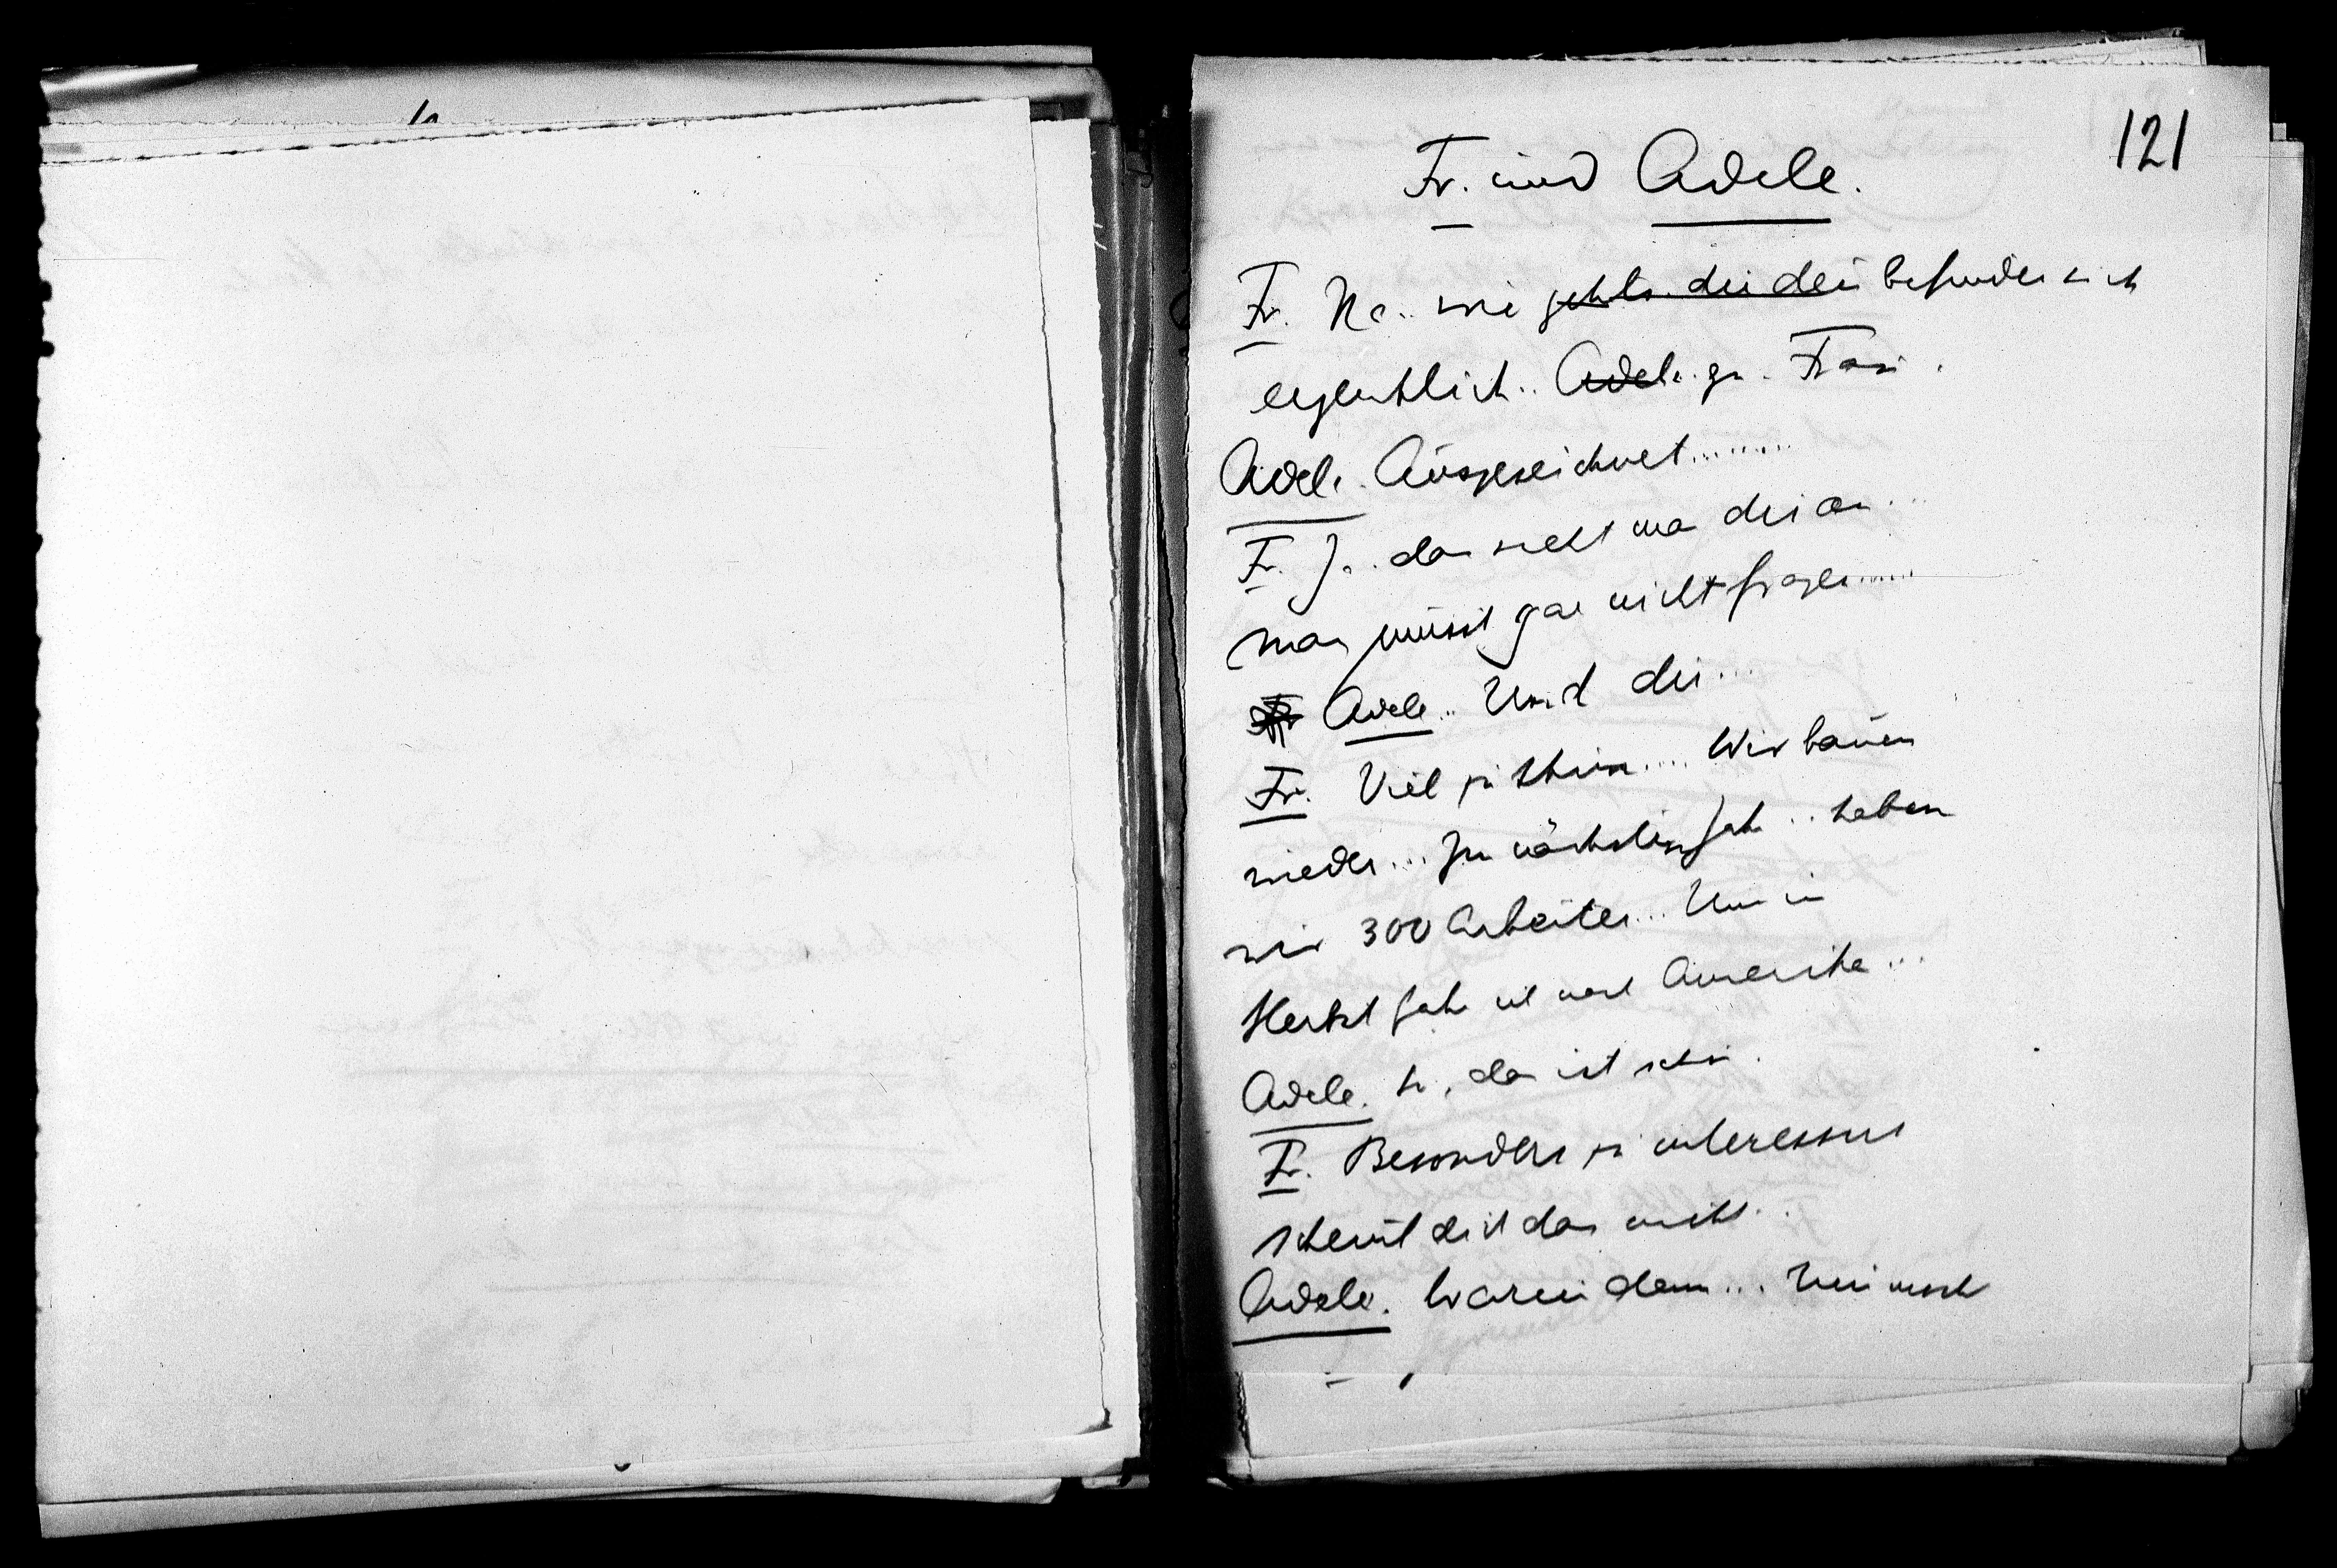 121
Fr. und Adele.
Fr. Na.. wie geht's dir den befinden sich
eigentlich.. Adele gn. Frau.
Adele. Ausgezeichnet........
Fr. Ja.. das sieht ma dir an...
man müsst gar nicht fragen......
Adele.. Und du...
Fr. Viel zu thun.... Wir bauen
wieder... Im nächsten Jahr.. haben
wir 300 Arbeiter... Und im
Herbst fahr ich nach Amerika...
Adele. So, das ist schön.
Fr. Besonders zu interessiren
scheint dich das nicht..
Adele. Warum denn...